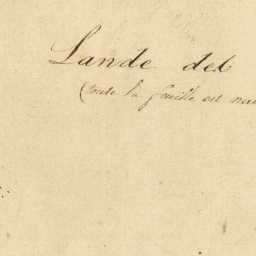 Lande del
(toute la feuille est